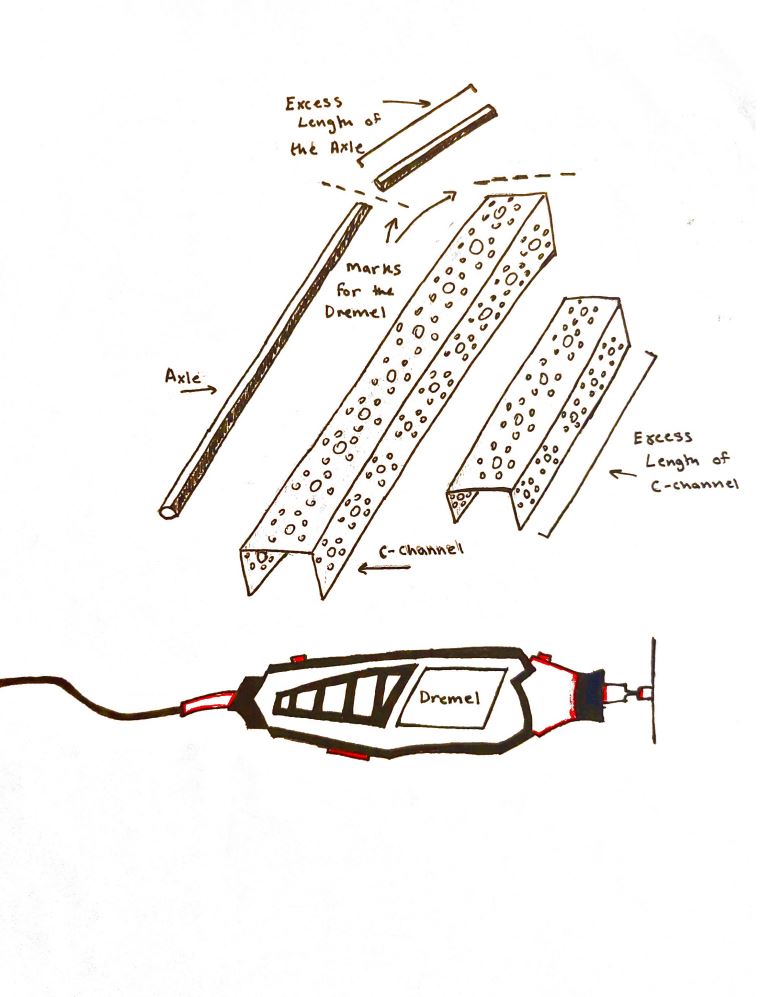 Excess
Length of
the Axle
Marks
for the
Dremel
Axle
Excess
Length of
C-channel
C-channel
Dremel